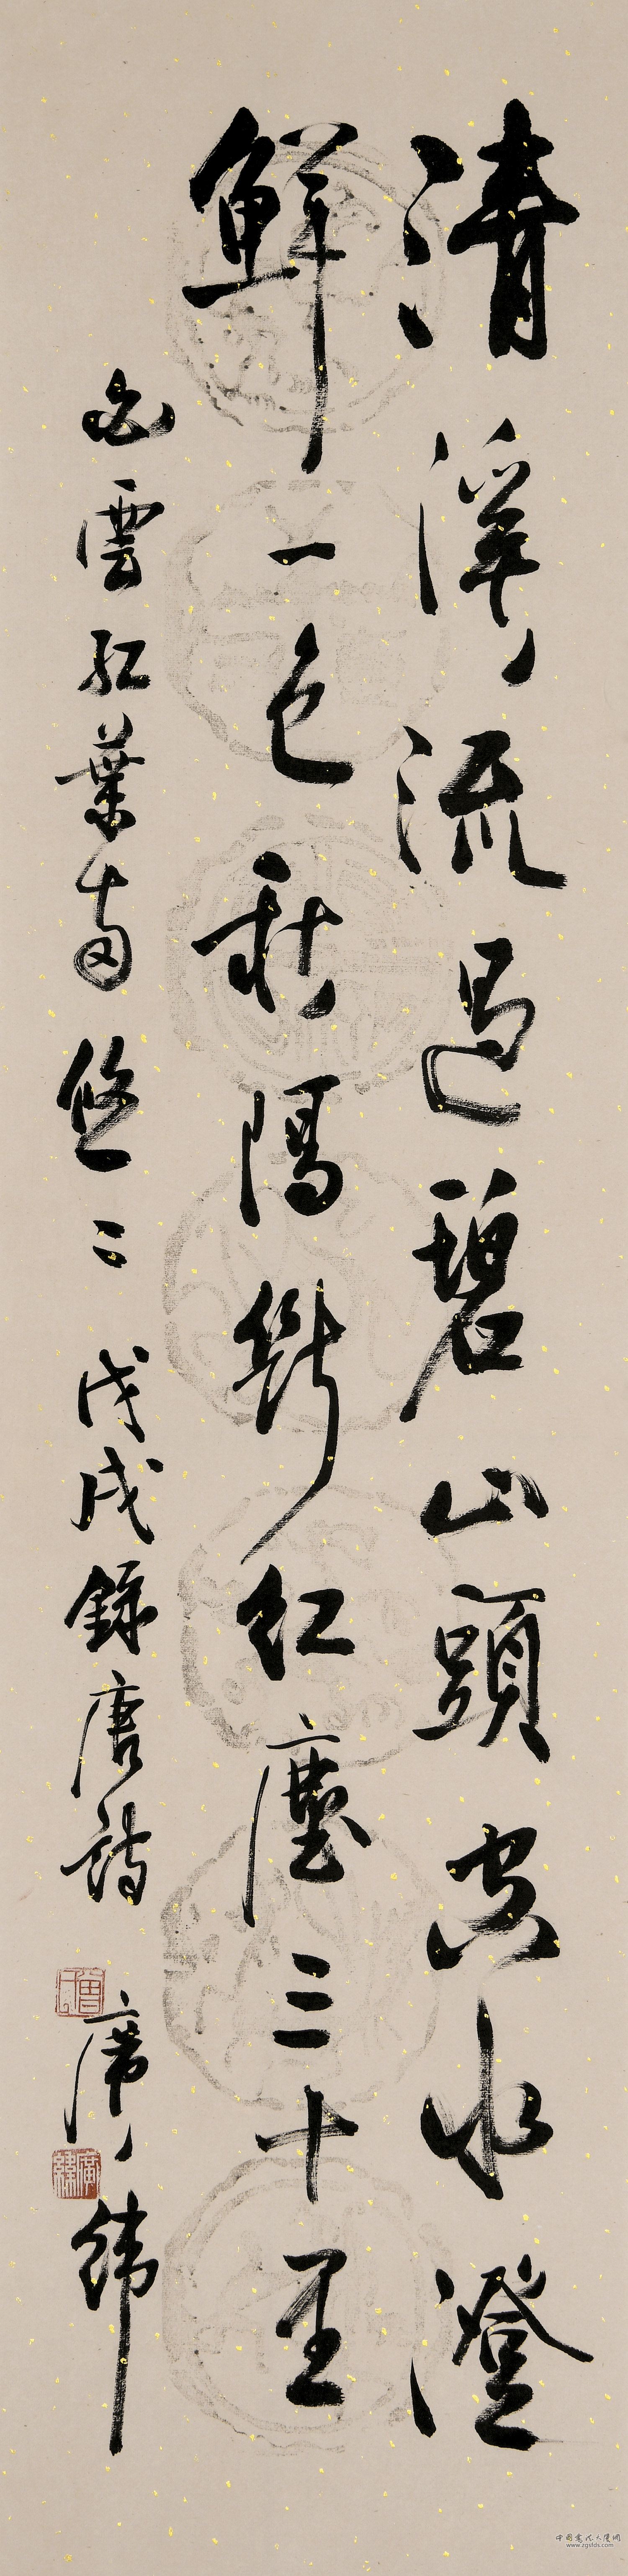 清溪流過碧山頭空水澄
鮮一色秋隔斷紅塵三十里
白雲紅葉兩悠〻 戊戌錄唐詩 廣緯
www.zgsfds.com